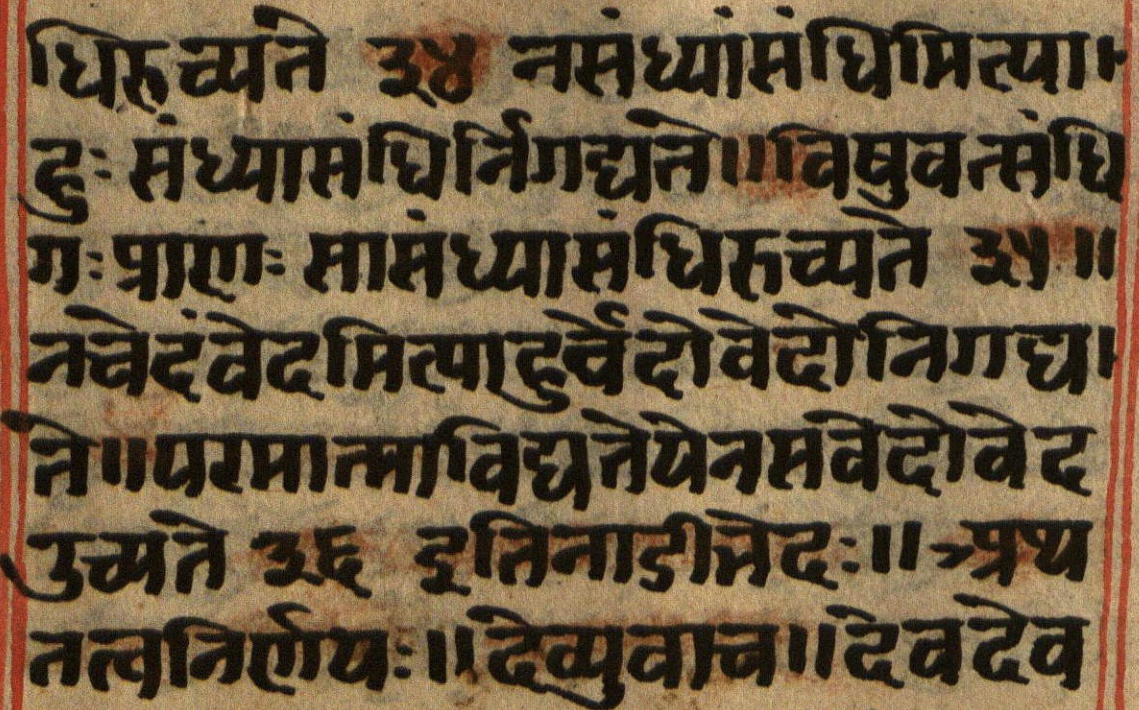 धिरुच्यते ३४ नसंध्यांसंधिमित्या
हुः संध्यासंधिर्निगद्यते॥विषुवत्संधि
गः प्राणः सासंध्यासंधिरुच्यते ३५॥
नवेदंवेदमित्याहुर्वेदोवेदोनिगद्य
ते॥परमात्माविद्यतेयेनसवेदोवेद
उच्यते ३६ इतिनाडीभेदः॥ अथ
तत्वनिर्णयः॥देव्युवाच॥देवदेव